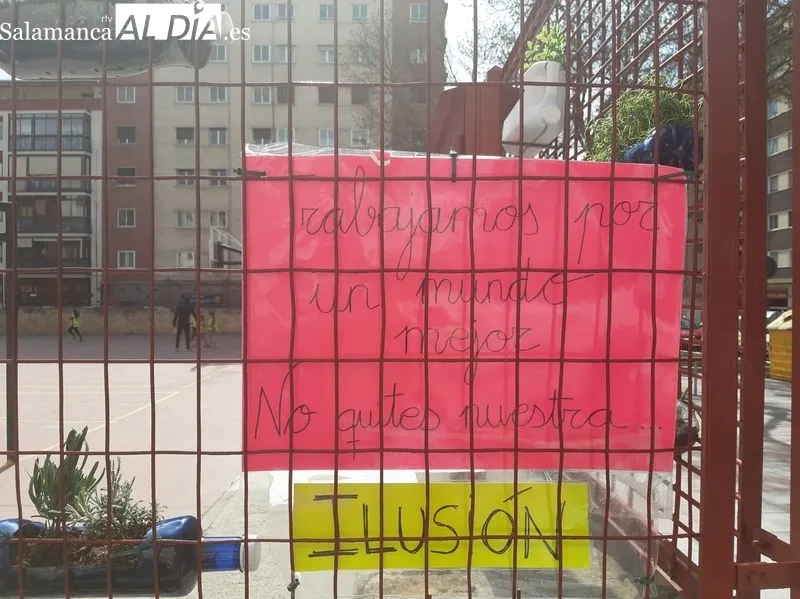 rtv
Salamanca AL DÍA.es
Trabajamos por
un mundo
mejor
No quites nuestra ...
ILUSIÓN